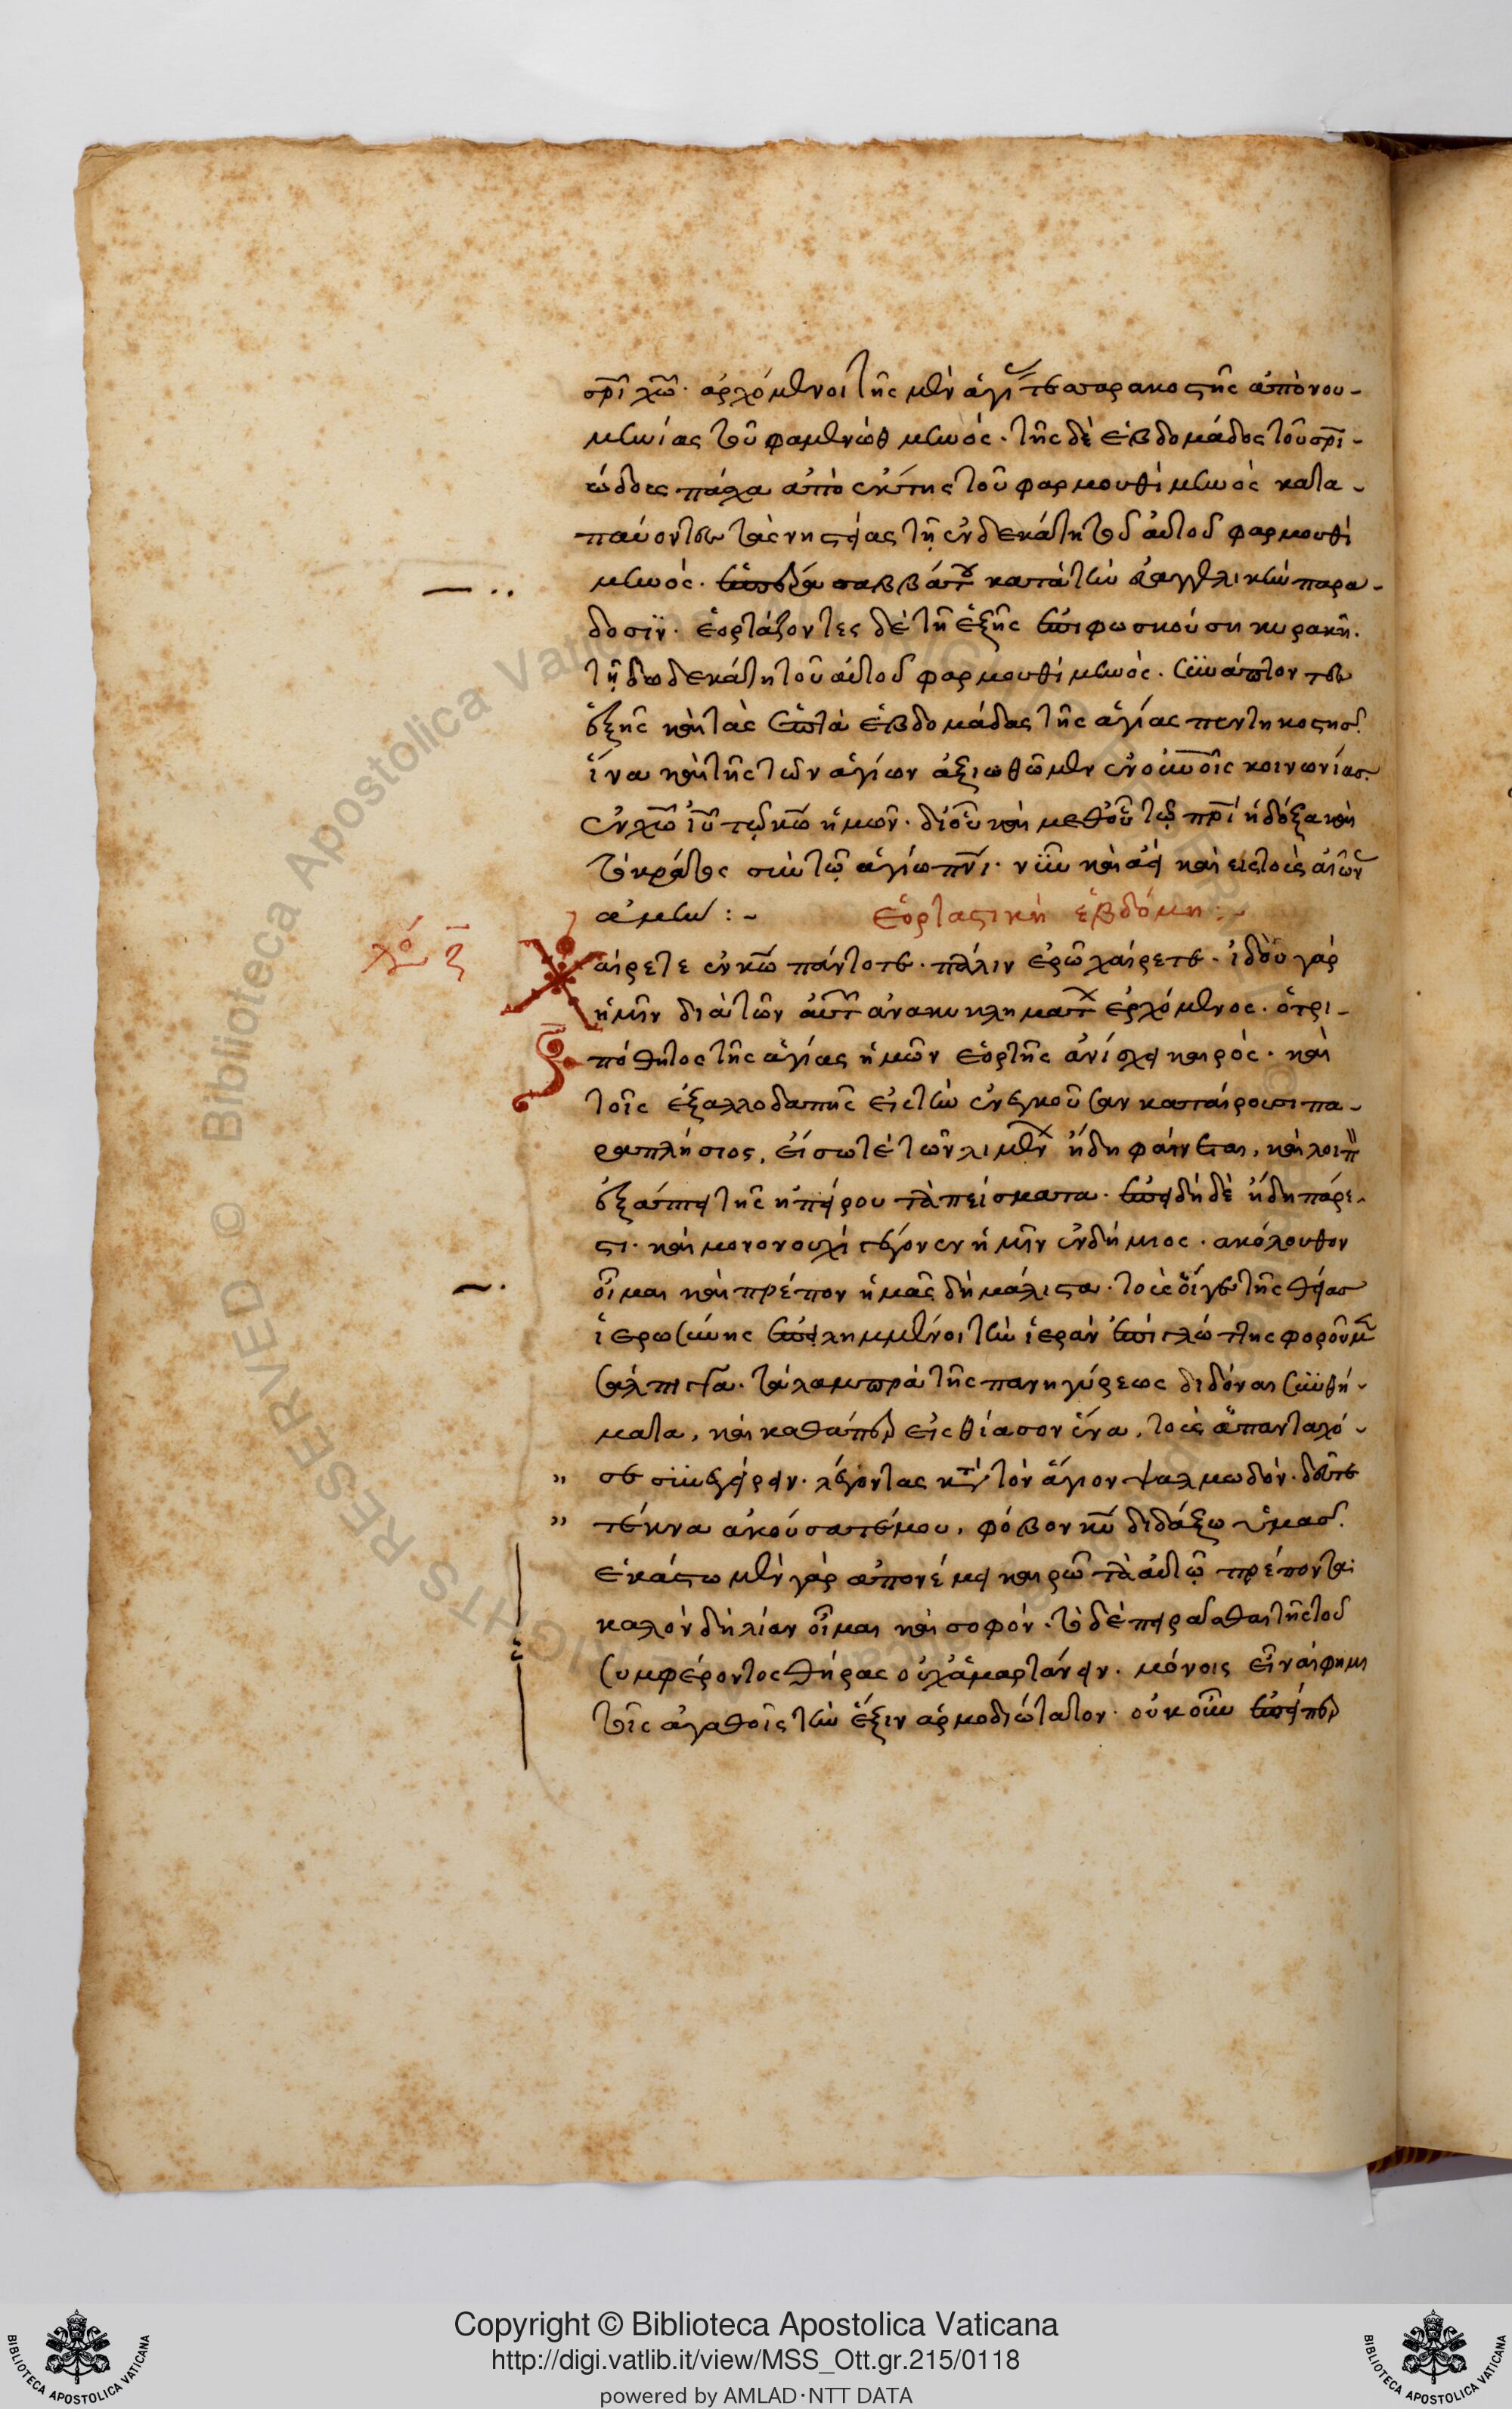 σρι χω· ἀρχόμενοι τῆς μὲν ἁγί τεσσαρακοστῆς ἀπὸ νου-
μηνίας τοῦ φαμενὼθ μηνός· τῆς δὲ ἑβδομάδος τοῦ σρι-
ώδους πάσχα ἀπὸ ἕκτης τοῦ φαρμουθὶ μηνὸς κατα-
παύοντες τὰς νηστείας τῆ ἑνδεκάτη τοῦ αὐτοῦ φαρμουθὶ
μηνός· ἑσπέρα σαββάτου κατὰ τὴν εὐαγγελικὴν παρα-
δοσϊν· ἑορτάζοντες δὲ τῆ ἑξῆς ἐπιφωσκούση κυρακῆ·
τῆ δωδεκάτη τοῦ αὐτοῦ φαρμουθὶ μηνός· συνάπτοντες
ἑξῆς καὶ τὰς ἑπτὰ ἑβδομάδας τῆς ἁγίας πεντηκοστῆς·
ἵνα καὶ τῆς τῶν ἁγίων ἀξιωθῶμεν ἐν οὐνοῖς κοινωνίας·
ἐν χω ιυ τῶ κω ἡμῶν· δι οὗ καὶ μεθ οὗ τῶ πρι ἡ δόξα καὶ
τὸ κράτος σὺν τῶ ἁγίω πνι· νῦν καὶ ἀεὶ καὶ εἰς τοὺς αἰῶν
ἀμήν :~ Ἑορταστικὴ ἑβδόμη :~
Χαίρετε ἐν κω πάντοτε· πάλιν ἐρῶ χαίρετε· ἰδοὺ γὰρ
ἡμῖν διὰ τῶν αὐτ ἀνακυκληματ ἐρχόμενος· ὁ τρι-
πόθητος τῆς ἁγίας ἡμῶν ἑορτῆς ἀνίσχει καιρός· καὶ
τοῖς ἐξ ἀλλοδαπῆς εἰς τὴν ἐνεγκοῦσαν καταίρουσι πα-
ραπλήσιος, εἴσω τὲ τῶν λιμέν ἤδη φαίνεται, καὶ λοιπ
ἐξάπτει τῆς ἠπείρου τὰ πείσματα· ἐπειδὴ δὲ ἤδη πάρε-
στι· καὶ μονονουχὶ γέγονεν ἡμῖν ἐνδήμιος· ἀκόλουθον
οἶμαι καὶ πρέπον ἡμᾶς δὴ μάλιστα· τοὺς οἵγε τῆς θείας
ἱερωσύνης ἐπειλημμένοι τὴν ἱερὰν ἐπὶ τῶ τῆς φοροῦμ
σάλπιγγα· τὰ λαμπρὰ τῆς πανηγύρεως διδόναι συνθή-
ματα, καὶ καθάπερ εἰς θίασον ἕνα, τοὺς ἁπανταχό-
σε συνεγείρειν· λέγοντας κατὰ τὸν ἅγιον ψαλμωδόν· δεῦτε
τέκνα ἀκούσατέ μου, φόβον κυ διδάξω ὑμᾶς·
ἑκάστω μὲν γὰρ ἀπονέμει καιρῶ τὰ αὐτῶ πρέποντα·
καλὸν δὴ λίαν οἶμαι καὶ σοφόν· τὸ δὲ πειρᾶσθαι τῆς τοῦ
συμφέροντος θήρας οὐχ ἁμαρτάνειν· μόνοις εἶναι φημι
τοῖς ἀγαθοῖς τὴν ἕξιν ἁρμοδιώτατον· οὐκοῦν ἐπείπερ
Copyright © Biblioteca Apostolica Vaticana
http://digi.vatlib.it/view/MSS_Ott.gr.215/0118
powered by AMLAD·NTT DATA